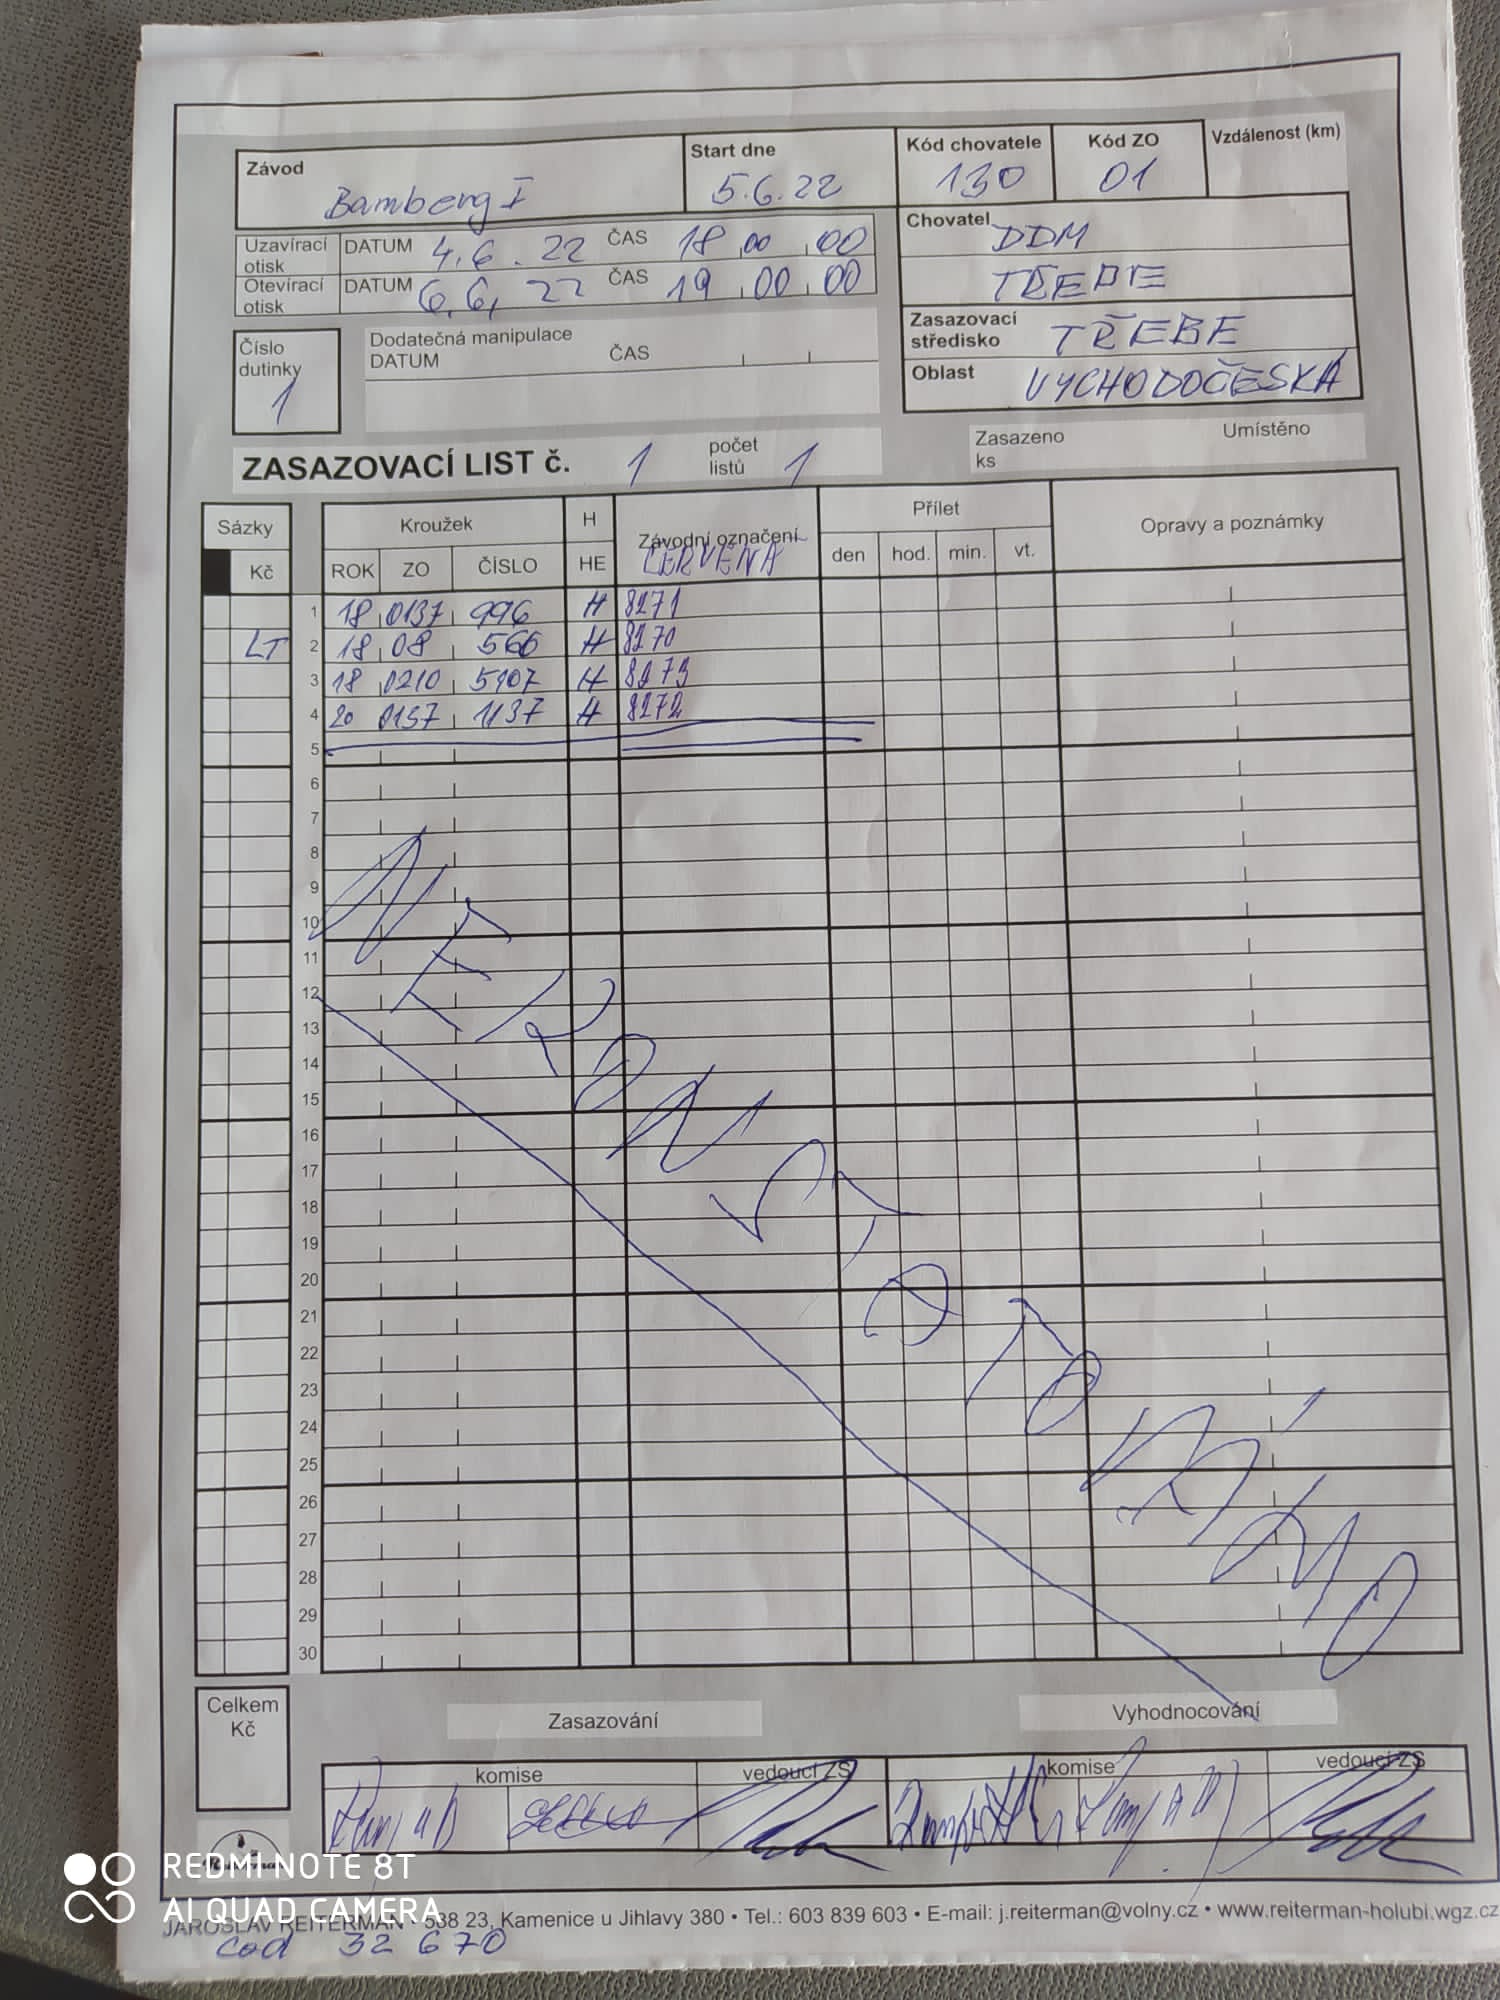 Závod
Bamberg I
Start dne
5.6.22
Kód chovatele
130
Kód ZO
01
Vzdálenost (km)
Uzavírací otisk DATUM 4.6.22 ČAS 18 00 00
Otevírací otisk DATUM 6.6.22 ČAS 19 00 00
Chovatel DDM
TŘEBE
Zasazovací středisko TŘEBE
Oblast VÝCHODOČESKÁ
Číslo dutinky
1
Dodatečná manipulace
DATUM ČAS
ZASAZOVACÍ LIST č. 1 počet listů 1
Zasazeno ks
Umístěno
Sázky Kroužek H Závodní označení Přílet Opravy a poznámky
Kč ROK ZO ČÍSLO HE ČERVENÁ den hod. min. vt.
1 18 0137 996 H 8271
LT 2 18 08 566 H 8270
3 18 0210 5907 H 8273
4 20 0157 1137 H 8272
5
6
7
8
9
10
11
12
13
14
15
16
17
18
19
20
21
22
23
24
25
26
27
28
29
30
NEKONSTATOVÁNO
Celkem Kč
Zasazování
Vyhodnocování
komise vedoucí ZS komise vedoucí ZS
REDMI NOTE 8T
AI QUAD CAMERA
JAROSLAV REITERMAN • 588 23, Kamenice u Jihlavy 380 • Tel.: 603 839 603 • E-mail: j.reiterman@volny.cz • www.reiterman-holubi.wgz.cz
cod 32 670